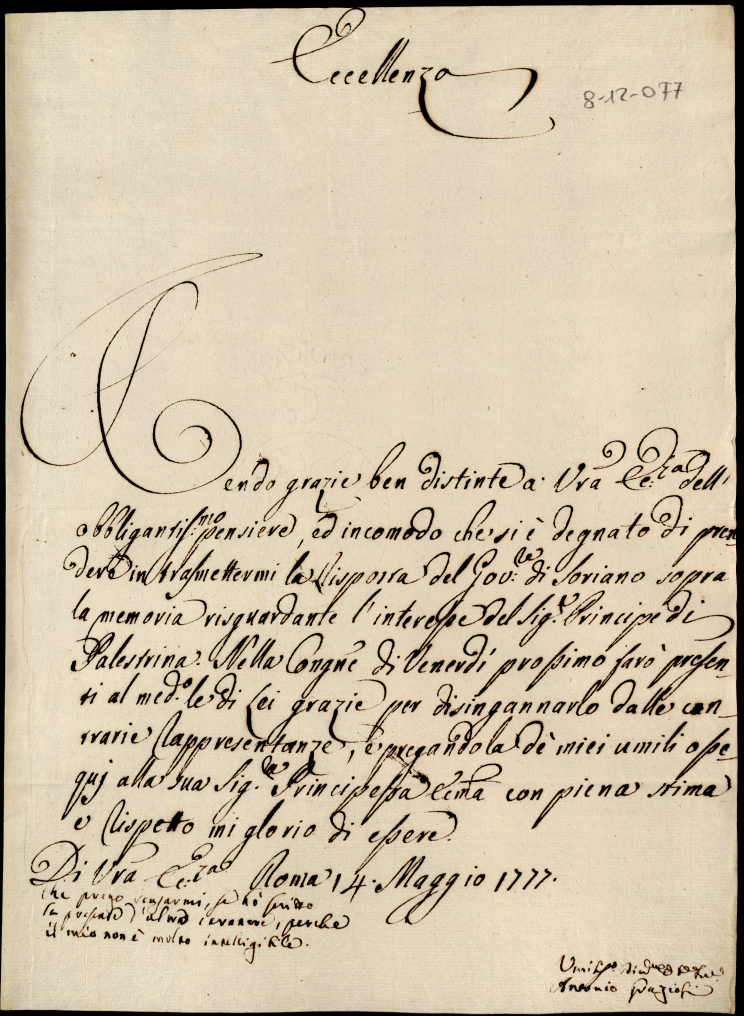 Eccellenza
8-12-077
Rendo grazie ben distinte a Vrã Ecc:za dell'
obbligantiss:mo pensiere, ed incomodo che si è degnato di pren
dere in trasmettermi la Risposta del Gov:re di Soriano sopra
la memoria risguardante l'interesse del Sig:r Principe di
Palestrina. Nella Congñe di Venerdì prossimo farò presen-
ti al med:o le di Lei grazie per disingannarlo dalle con-
trarie rappresentanze, e pregandola dè miei umili osse-
quj alla sua Sig:ra Principessa Ecc̃ma con piena stima
e rispetto mi glorio di essere.
Di Vrã Ecc:za Roma 14. Maggio 1777.
che prego scusarmi, se hò scritto
la presente d'alieno carattere, perche
il mio non è molto intelligibile.
Antonio